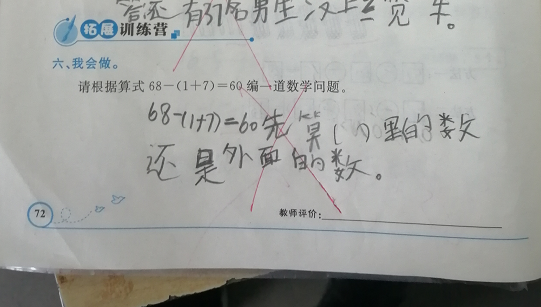 答还有37名男生没上三宽车。
拓展训练营
六、我会做。
请根据算式 68-(1+7)=60 编一道数学问题。
68-(1+7)=60先算( )里的数
还是外面的数。
72
教师评价: